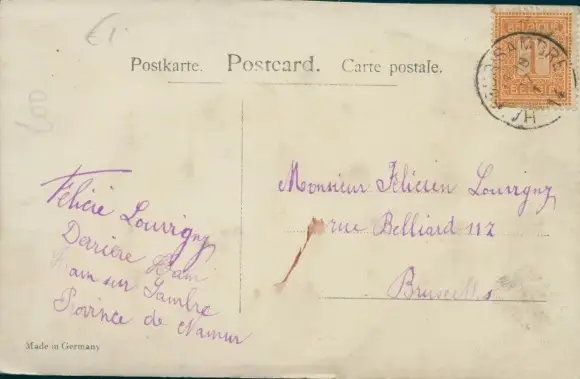 €1
Postkarte. Postcard. Carte postale.
BELGIQUE
1
BELGIË
SAMBRE
Félicié Louvigny
Derrière Ham
Ham sur Sambre
Province de Namur
Monsieur Félicien Louvigny
rue Belliard 112
Bruxelles
Made in Germany